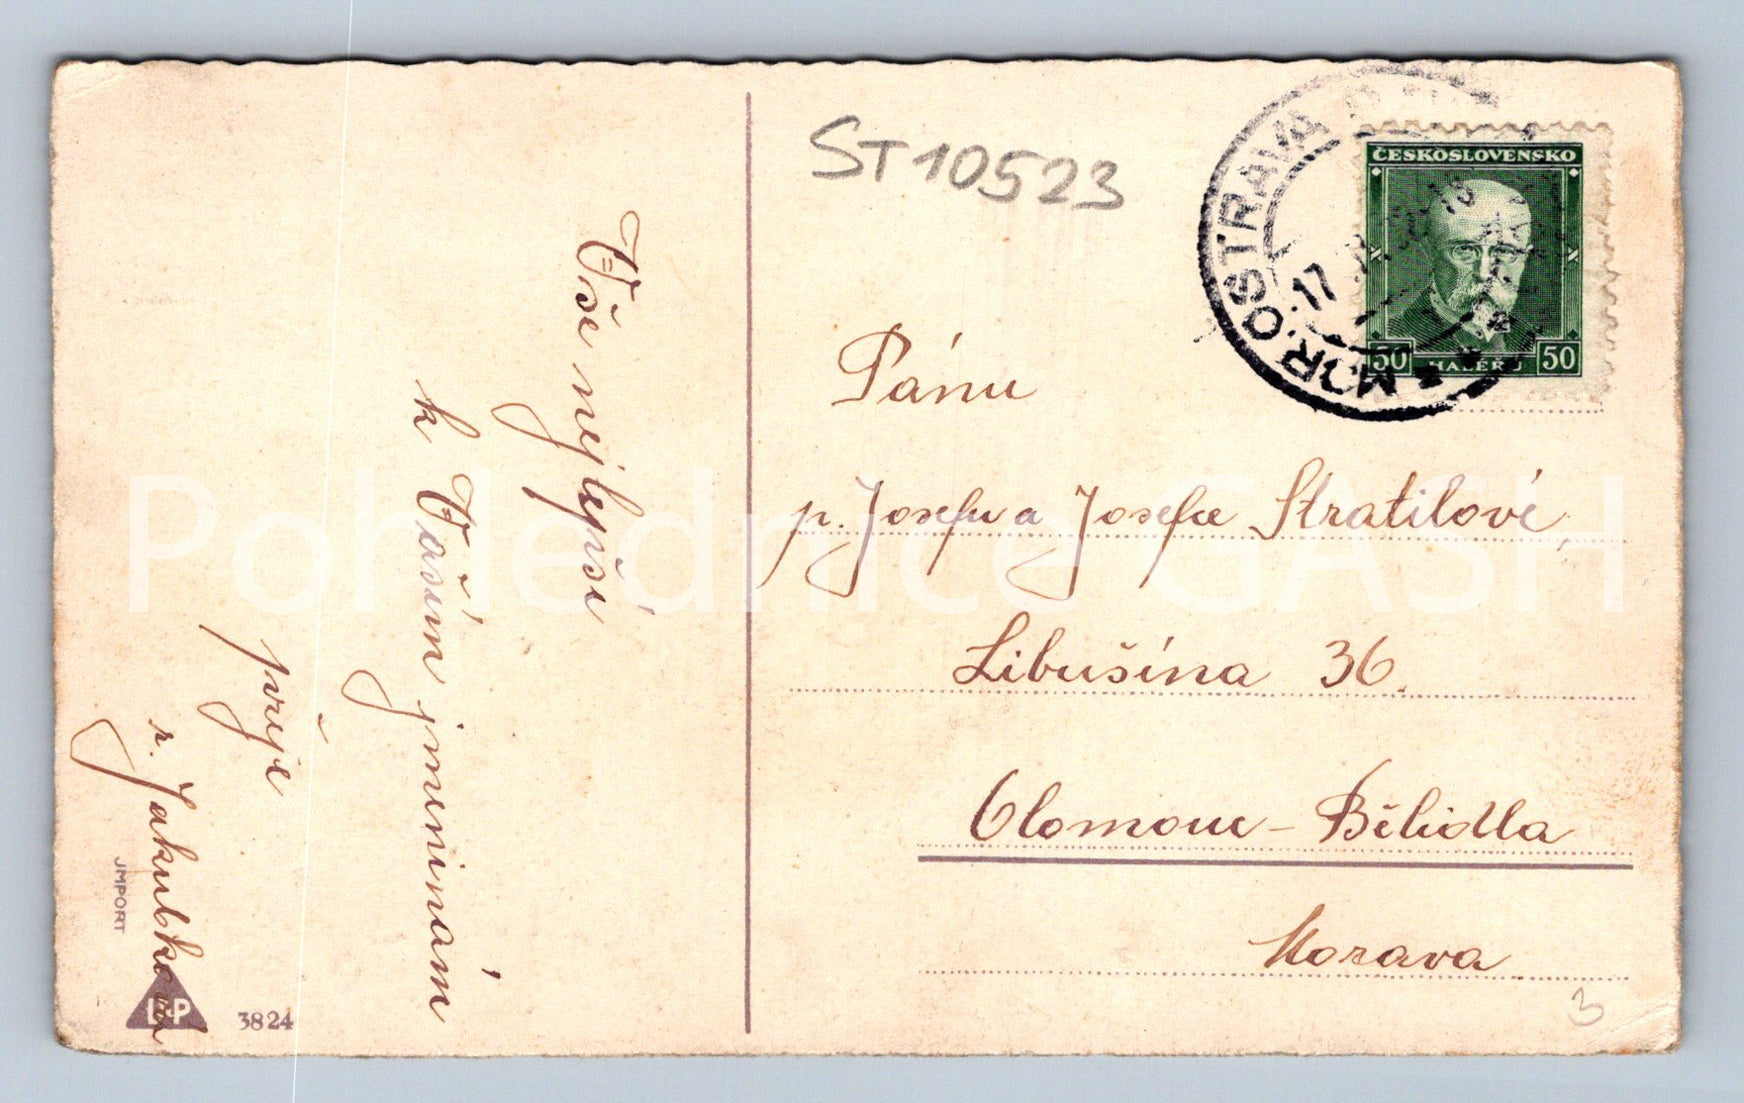 Vše nejlepší
k Vašim jmeninám
přeje
r. Jakubskova
JMPORT
3824
ST10523
MOR. OSTRAVA
17
ČESKOSLOVENSKO
50 HALÉŘŮ 50
Pánu
p. Josefu a Josefce Stratilové,
Libušína 36.
Olomouc - Bělidla
Morava
3
Pohlednice GASH